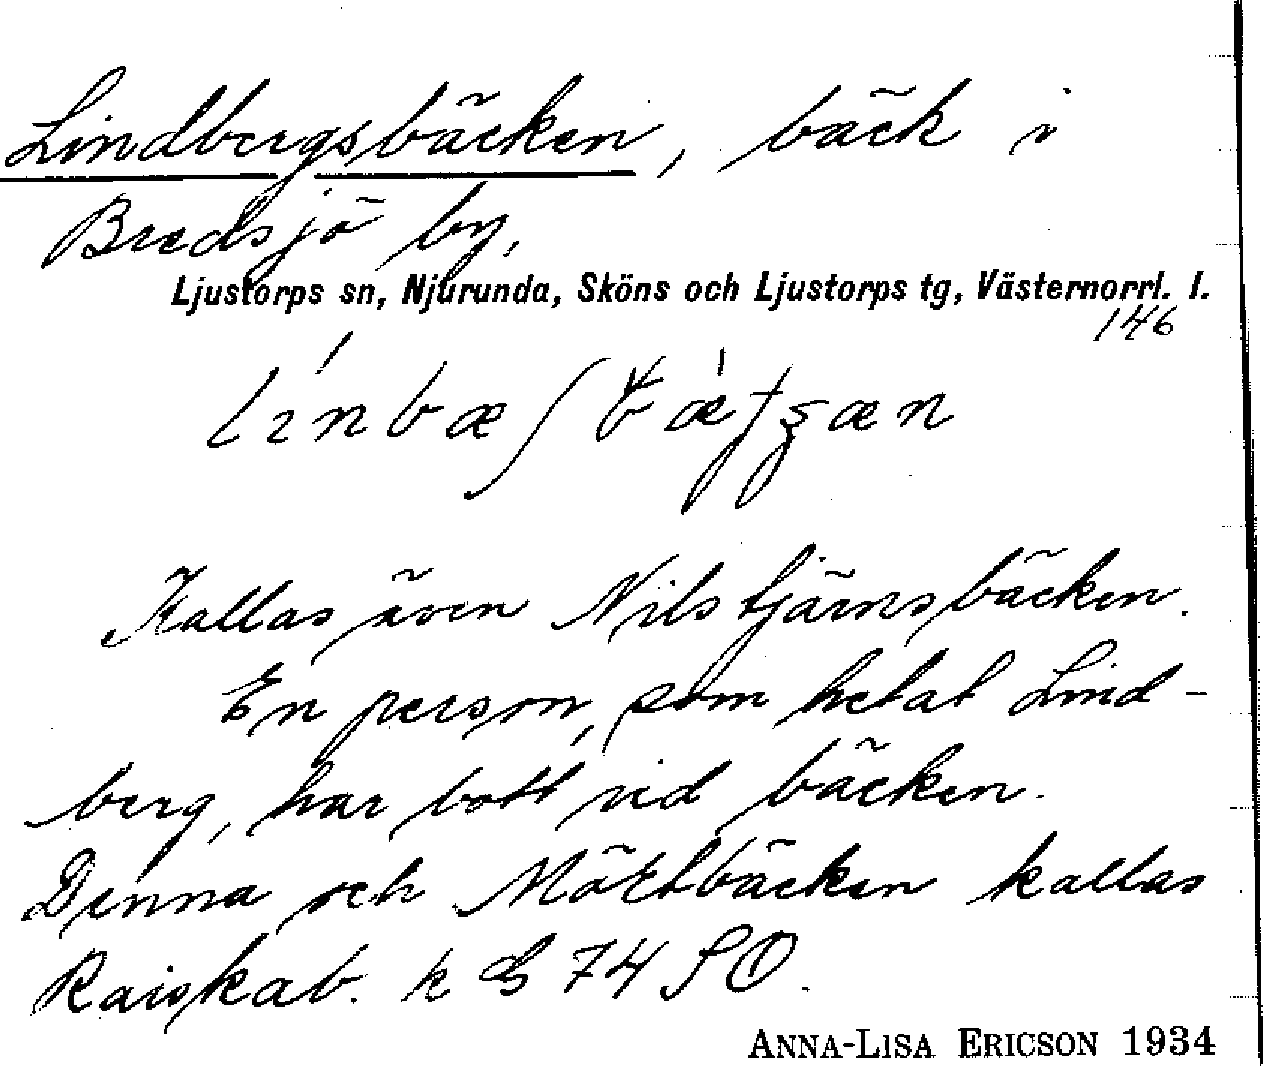 Lindbergsbäcken, bäck i
Bredsjö by,
Ljustorps sn, Njurunda, Sköns och Ljustorps tg, Västernorrl. l.
146
Kallas även Nilstjärnsbäcken.
En person, som hetat Lind-
berg, har bott vid bäcken.
Denna och Mörtbäcken kallas
Raiskab. k 74 SO.
ANNA-LISA ERICSON 1934